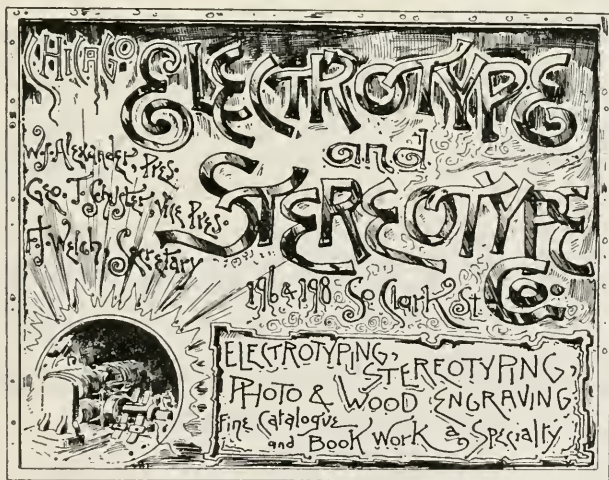 CHICAGO
ELECTROTYPE
and
STEREOTYPE
Co.
W.J. Alexander, Pres.
Geo. T. Chester, Vice Pres.
F.J. Welch, Secretary
196 & 198 So. Clark St.
ELECTROTYPING,
STEREOTYPING,
PHOTO & WOOD ENGRAVING
Fine Catalogue
and BOOK WORK a Specialty